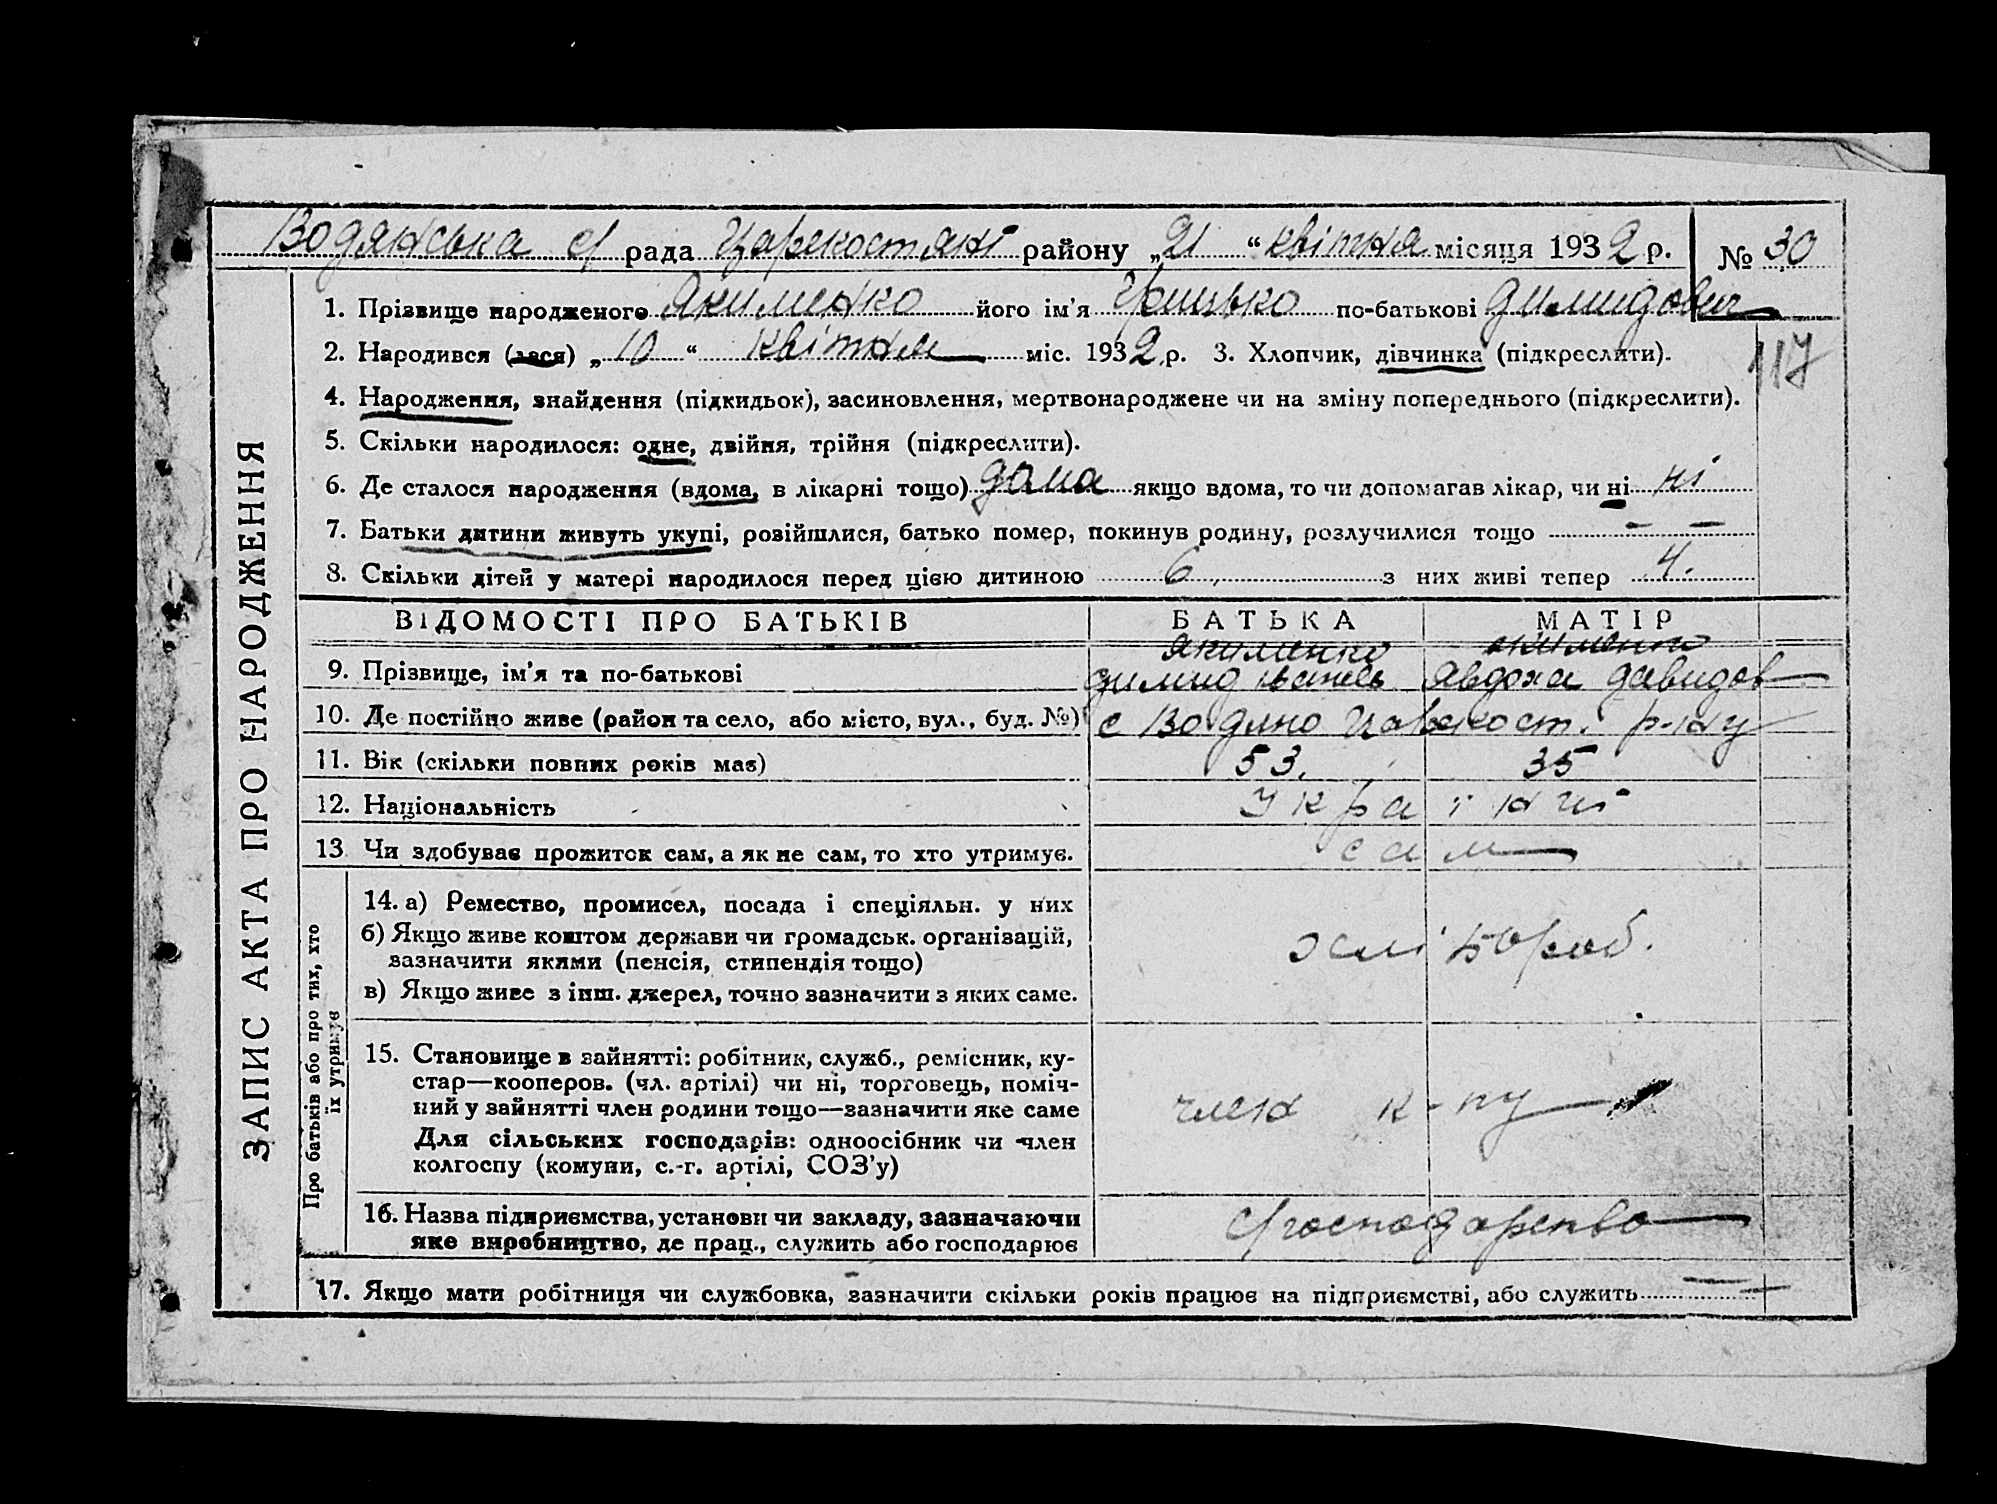 Водянська с/рада Царекостянт району „21“ квітня місяця 1932 р. № 30
1. Прізвище народженого Якименко його ім'я Грицько по-батькові Димидович
2. Народився (лася) „10“ квітня міс. 1932 р. 3. Хлопчик, дівчинка (підкреслити).
117
4. Народження, знайдення (підкидьок), засиновлення, мертвонароджене чи на зміну попереднього (підкреслити).
5. Скільки народилося: одне, двійня, трійня (підкреслити).
6. Де сталося народження (вдома, в лікарні тощо) дома якщо вдома, то чи допомагав лікар, чи ні ні
7. Батьки дитини живуть укупі, розійшлися, батько помер, покинув родину, розлучилися тощо — —
8. Скільки дітей у матері народилося перед цією дитиною 6 з них живі тепер 4.
ВІДОМОСТІ ПРО БАТЬКІВ БАТЬКА МАТІР
9. Прізвище, ім'я та по-батькові Якименко Димид Іванов Якименко Явдоха Давидов
10. Де постійно живе (район та село, або місто, вул., буд. №) с Водяно Царекост. р-ну
11. Вік (скільки повних років має) 53. 35
12. Національність Українці
13 Чи здобуває прожиток сам, а як не сам, то хто утримує. сам
14. а) Ремество, промисел, посада і спеціяльн. у них
б) Якщо живе коштом держави чи громадськ. організацій,
зазначити якими (пенсія, стипендія тощо)
в) Якщо живе з інш. джерел, точно зазначити з яких саме.
хліbороб.
15. Становище в зайнятті: робітник, служб., ремісник, ку-
стар—кооперов. (чл. артілі) чи ні, торговець, поміч-
ний у зайнятті член родини тощо—зазначити яке саме
Для сільських господарів: одноосібник чи член
колгоспу (комуни, с.-г. артілі, СОЗ'у)
член к-пу
16. Назва підприємства, установи чи закладу, зазначаючи
яке виробництво, де прац., служить або господарює
с/господарство
17. Якщо мати робітниця чи службовка, зазначити скільки років працює на підприємстві, або служить
ЗАПИС АКТА ПРО НАРОДЖЕННЯ
Про батьків або про тих, хто
їх утримує